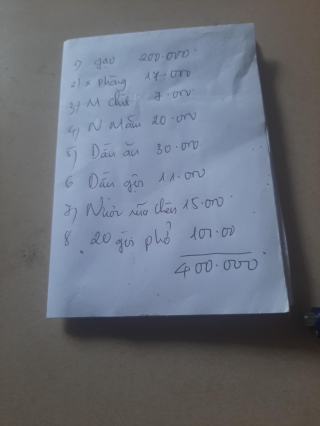 1) gạo 200.000
2) x phòng 17.000
3) M chính 7.000
4) N Mắm 20.000
5) Dầu ăn 30.000
6 Dầu gội 11.000
7) Nước rửa chén 15.000
8 20 gói phở 101.00
400.000